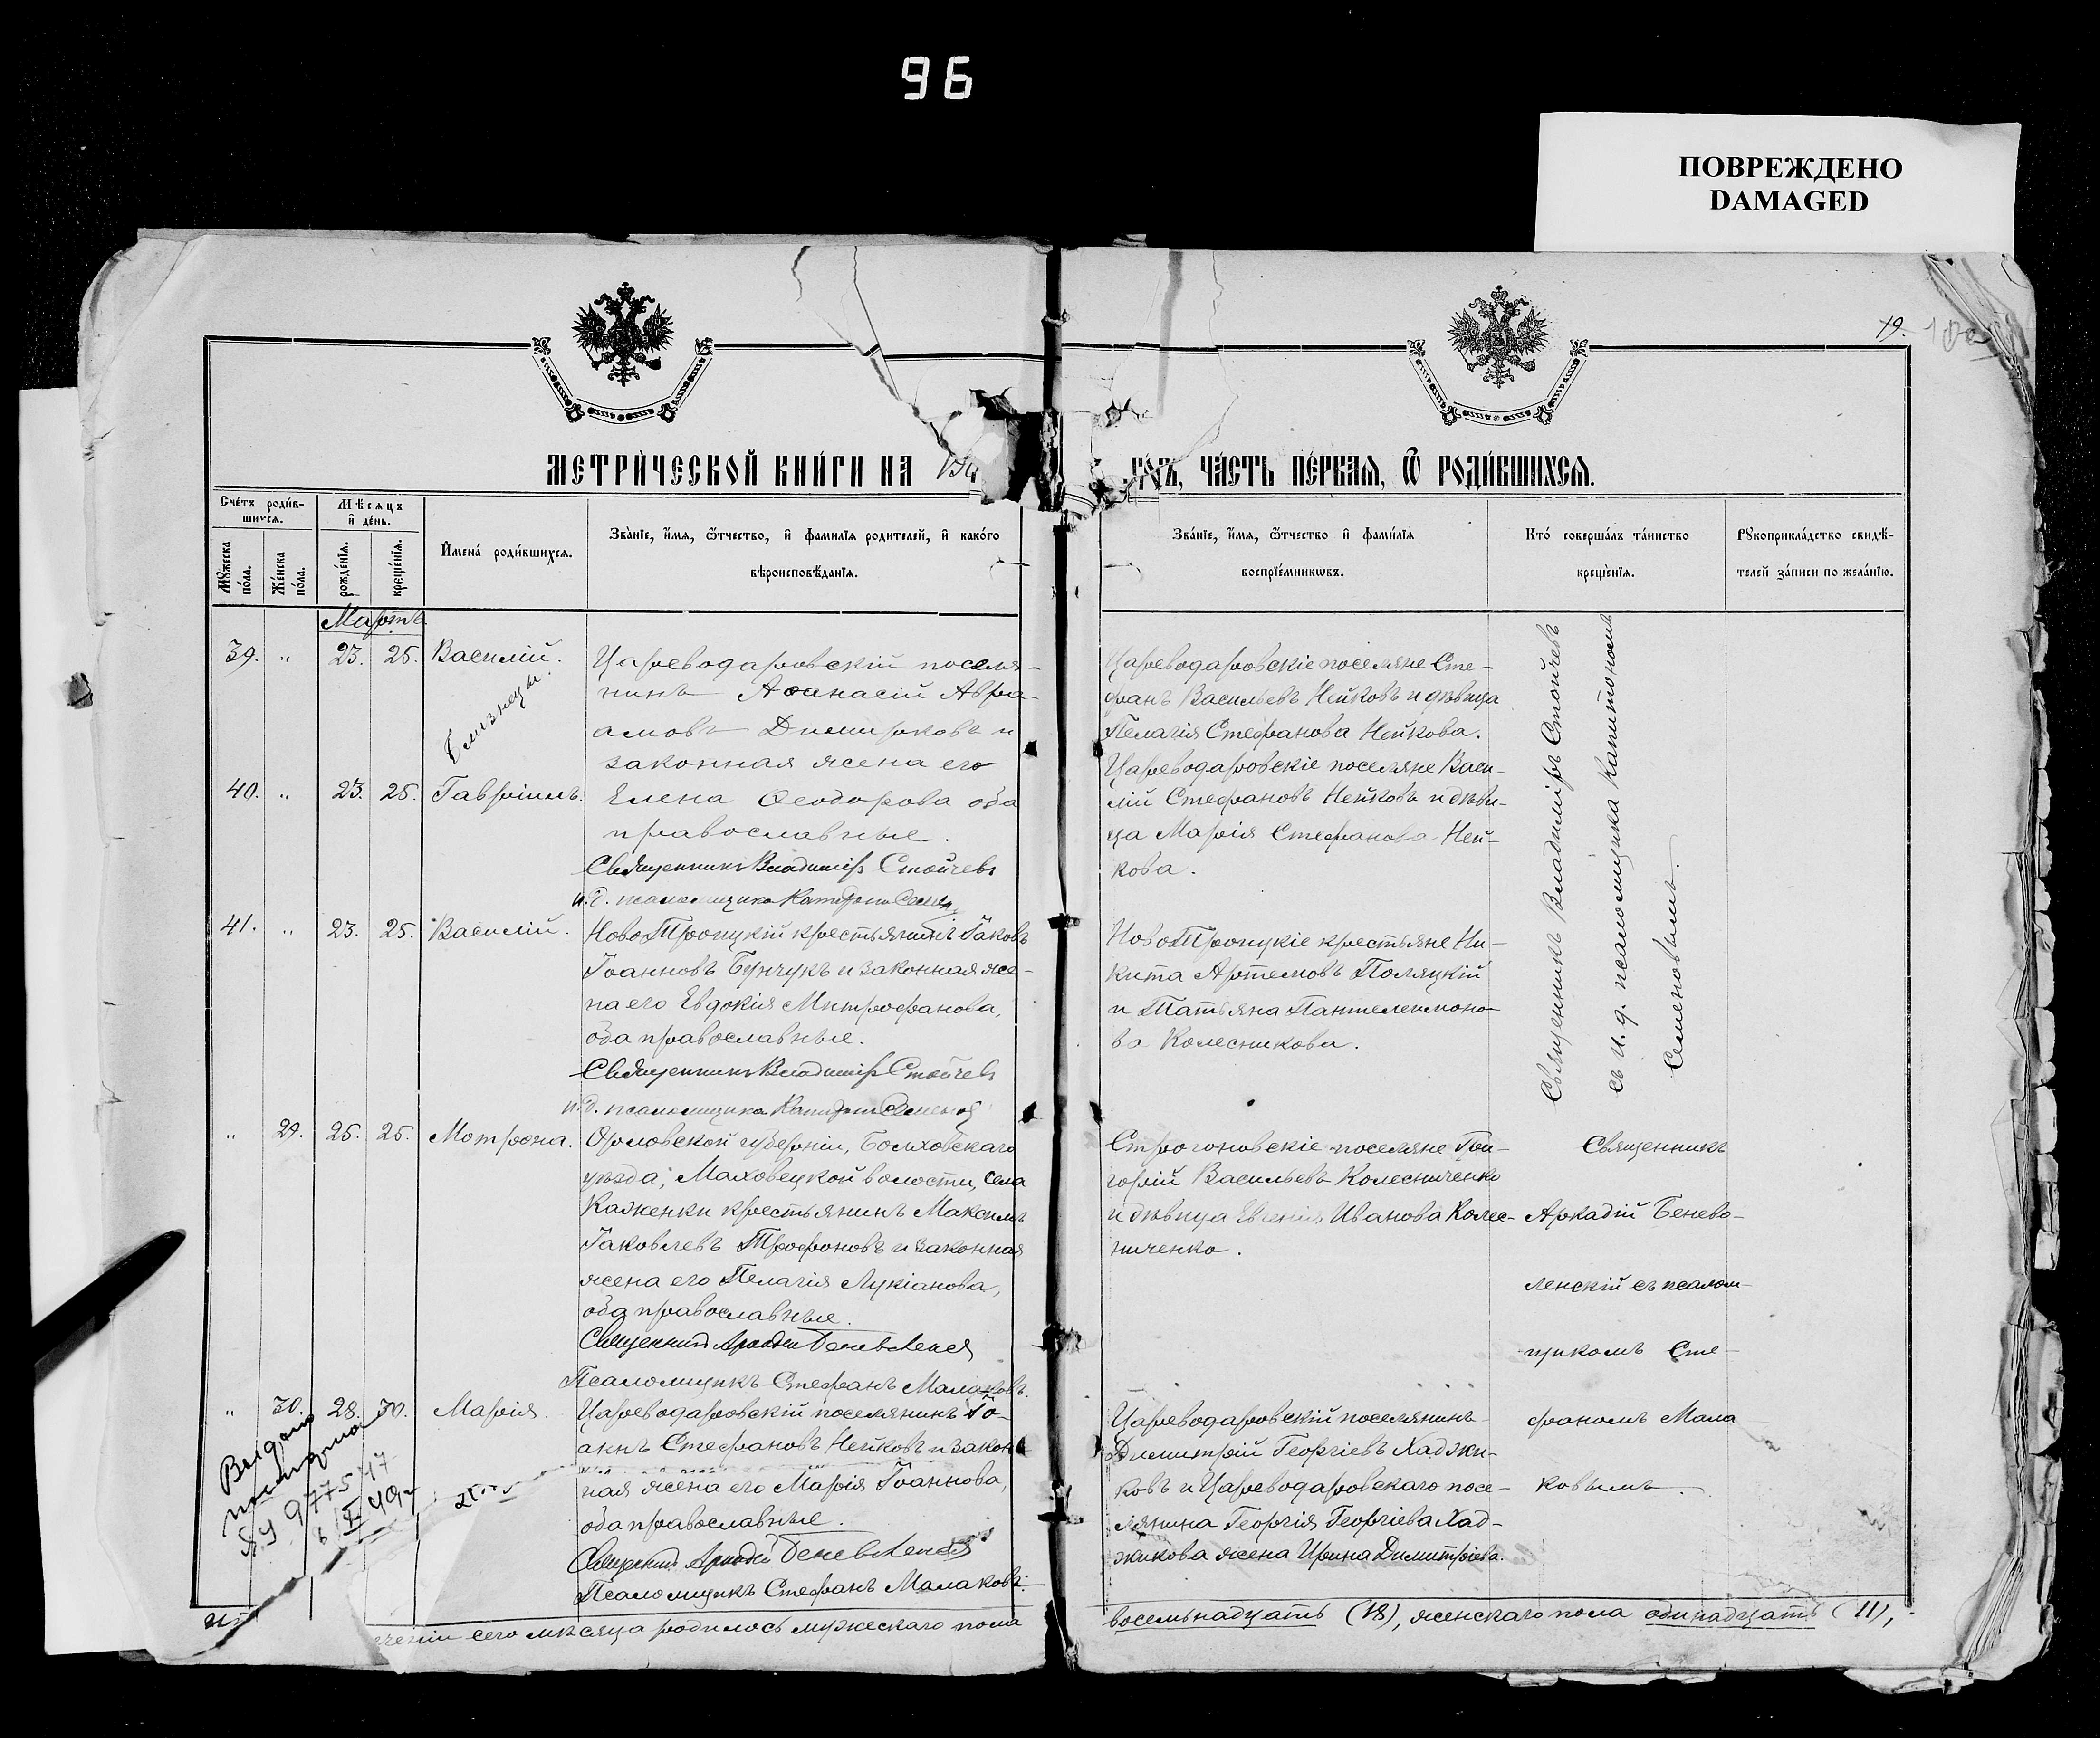 96
ПОВРЕЖДЕНО
DAMAGED
19.
МЕТРИЧЕСКОЙ КНИГИ НА
ГОДЪ, ЧАСТЬ ПЕРВАЯ, Ѿ РОДИВШИХСЯ.
Счетъ родив-
шихся.
Мужеска пола.
Женска пола.
Мѣсяцъ и день.
рожденія.
крещенія.
Имена родившихся.
Званіе, имя, ѿтчество, и фамилія родителей, и какого
вѣроисповѣданія.
Званіе, имя, ѿтчество и фамилія
воспріемниковъ.
Кто совершалъ таинство
крещенія.
Рукоприкладство свидѣ-
телей записи по желанію.
Мартъ
39. „ 23. 25. Василій.
Близнецы.
Цареводаровскій поселя-
нинъ Аѳанасій Авра-
амовъ Димирковъ и
законная жена его
40. „ 23. 25. Гавріилъ.
Елена Ѳеодорова оба
православные.
Священникъ Владиміръ Стойчевъ
и.д. псаломщика Капитонъ
Цареводаровскіе поселяне Сте-
фанъ Васильевъ Нейковъ и дѣвица
Пелагія Стефанова Нейкова.
Цареводаровскіе поселяне Васи-
лій Стефановъ Нейковъ и дѣви-
ца Марія Стефанова Ней-
кова.
Священникъ Владиміръ Стойчевъ
съ и. д. псаломщика Капитономъ
Семеновымъ.
41. „ 23. 25. Василій.
Ново Троицкій крестьянинъ Іаковъ
Іоанновъ Бунчукъ и законная же-
на его Евдокія Митрофанова,
оба православные.
Священникъ Владиміръ Стойчевъ
и.д. псаломщика Капитонъ Семеновъ
Ново Троицкіе крестьяне Ни-
кита Артемовъ Поляцкій
и Татьяна Пантелеимоно-
ва Колесникова.
„ 29. 25. 25. Мотрона.
Орловской губерніи, Болховскаго
уѣзда, Маховецкой волости, села
Каженки крестьянинъ Максимъ
Іаковлевъ Трофоновъ и законная
жена его Пелагія Лукіанова,
оба православные.
Священникъ Аркадій Беневоленскій
Псаломщикъ Стефанъ Малаковъ.
Строгоновскіе поселяне Гри-
горій Васильевъ Колесниченко
и дѣвица Евгенія Иванова Колес-
ниченко.
Священникъ
Аркадій Бенево-
ленскій съ псалом-
щикомъ Сте-
фаномъ Мала
ковымъ.
„ 30. 28. 30. Марія.
Цареводаровскій поселянинъ Іо-
аннъ Стефановъ Нейковъ и закон-
ная жена его Марія Іоаннова,
оба православные.
Священникъ Аркадій Беневоленскій
Псаломщикъ Стефанъ Малаковъ.
Цареводаровскій поселянинъ
Димитрій Георгіевъ Хаджи-
ковъ и Цареводаровскаго посе-
лянина Георгія Георгіева Хад-
жикова жена Ирина Димитріева.
9775
ченіи сего мѣсяца родилось мужескаго пола
восемьнадцать (18), женскаго пола одинадцать (11),